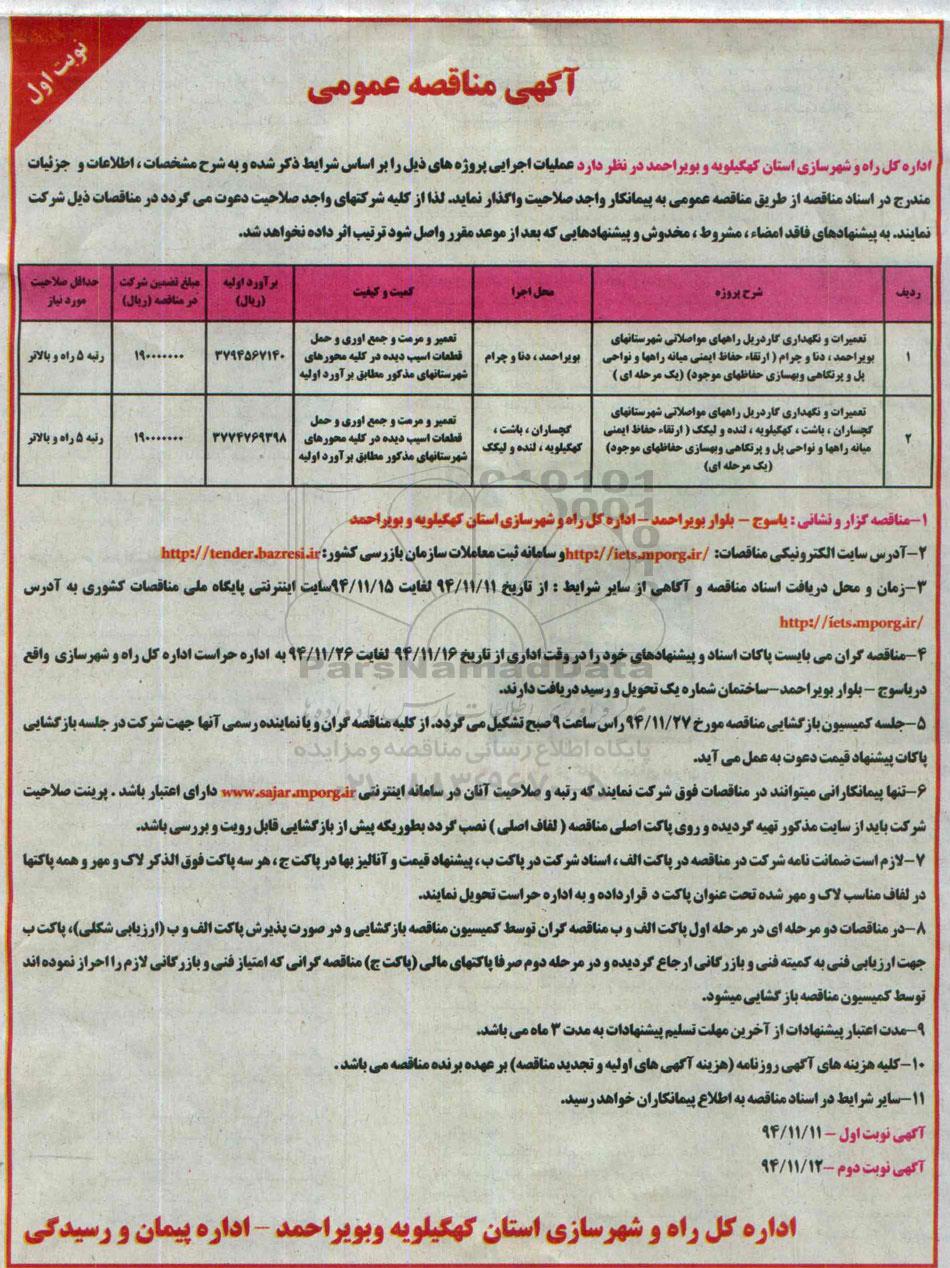 نوبت اول
آگهی مناقصه عمومی
اداره کل راه و شهرسازی استان کهگیلویه و بویراحمد در نظر دارد عملیات اجرایی پروژه های ذیل را بر اساس شرایط ذکر شده و به شرح مشخصات ، اطلاعات و جزئیات
مندرج در اسناد مناقصه از طریق مناقصه عمومی به پیمانکار واجد صلاحیت واگذار نماید. لذا از کلیه شرکتهای واجد صلاحیت دعوت می گردد در مناقصات ذیل شرکت
نمایند. به پیشنهادهای فاقد امضاء ، مشروط ، مخدوش و پیشنهادهایی که بعد از موعد مقرر واصل شود ترتیب اثر داده نخواهد شد.
ردیف
شرح پروژه
محل اجرا
کمیت و کیفیت
برآورد اولیه
(ریال)
مبلغ تضمین شرکت
در مناقصه (ریال)
حداقل صلاحیت
مورد نیاز
۱
تعمیرات و نگهداری گاردریل راههای مواصلاتی شهرستانهای
بویراحمد ، دنا و چرام ( ارتقاء حفاظ ایمنی میانه راهها و نواحی
پل و پرتگاهی وبهسازی حفاظهای موجود) (یک مرحله ای )
بویراحمد ، دنا و چرام
تعمیر و مرمت و جمع اوری و حمل
قطعات اسیب دیده در کلیه محورهای
شهرستانهای مذکور مطابق برآورد اولیه
۳۷۹۴۵۶۷۱۴۰
۱۹۰۰۰۰۰۰۰
رتبه ۵ راه و بالاتر
۲
تعمیرات و نگهداری گاردریل راههای مواصلاتی شهرستانهای
گچساران ، باشت ، کهگیلویه ، لنده و لیکک ( ارتقاء حفاظ ایمنی
میانه راهها و نواحی پل و پرتگاهی وبهسازی حفاظهای موجود)
(یک مرحله ای)
گچساران ، باشت ،
کهگیلویه ، لنده و لیکک
تعمیر و مرمت و جمع اوری و حمل
قطعات اسیب دیده در کلیه محورهای
شهرستانهای مذکور مطابق برآورد اولیه
۳۷۷۴۷۶۹۳۹۸
۱۹۰۰۰۰۰۰۰
رتبه ۵ راه و بالاتر
۱-مناقصه گزار و نشانی : یاسوج - بلوار بویراحمد - اداره کل راه و شهرسازی استان کهگیلویه و بویراحمد
۲-آدرس سایت الکترونیکی مناقصات: http://iets.mporg.ir/ و سامانه ثبت معاملات سازمان بازرسی کشور: http://tender.bazresi.ir
۳-زمان و محل دریافت اسناد مناقصه و آگاهی از سایر شرایط : از تاریخ ۹۴/۱۱/۱۱ لغایت ۹۴/۱۱/۱۵سایت اینترنتی پایگاه ملی مناقصات کشوری به آدرس
http://iets.mporg.ir/
۴-مناقصه گران می بایست پاکات اسناد و پیشنهادهای خود را در وقت اداری از تاریخ ۹۴/۱۱/۱۶ لغایت ۹۴/۱۱/۲۶ به اداره حراست اداره کل راه و شهرسازی واقع
دریاسوج - بلوار بویراحمد-ساختمان شماره یک تحویل و رسید دریافت دارند.
۵-جلسه کمیسیون بازگشایی مناقصه مورخ ۹۴/۱۱/۲۷ راس ساعت ۹ صبح تشکیل می گردد. از کلیه مناقصه گران و یا نماینده رسمی آنها جهت شرکت در جلسه بازگشایی
پاکات پیشنهاد قیمت دعوت به عمل می آید.
۶-تنها پیمانکارانی میتوانند در مناقصات فوق شرکت نمایند که رتبه و صلاحیت آنان در سامانه اینترنتی www.sajar.mporg.ir دارای اعتبار باشد . پرینت صلاحیت
شرکت باید از سایت مذکور تهیه گردیده و روی پاکت اصلی مناقصه ( لفاف اصلی ) نصب گردد بطوریکه پیش از بازگشایی قابل رویت و بررسی باشد.
۷-لازم است ضمانت نامه شرکت در مناقصه در پاکت الف ، اسناد شرکت در پاکت ب ، پیشنهاد قیمت و آنالیز بها در پاکت ج ، هر سه پاکت فوق الذکر لاک و مهر و همه پاکتها
در لفاف مناسب لاک و مهر شده تحت عنوان پاکت د قرارداده و به اداره حراست تحویل نمایند.
۸-در مناقصات دو مرحله ای در مرحله اول پاکت الف و ب مناقصه گران توسط کمیسیون مناقصه بازگشایی و در صورت پذیرش پاکت الف و ب (ارزیابی شکلی)، پاکت ب
جهت ارزیابی فنی به کمیته فنی و بازرگانی ارجاع گردیده و در مرحله دوم صرفا پاکتهای مالی (پاکت ج) مناقصه گرانی که امتیاز فنی و بازرگانی لازم را احراز نموده اند
توسط کمیسیون مناقصه باز گشایی میشود.
۹-مدت اعتبار پیشنهادات از آخرین مهلت تسلیم پیشنهادات به مدت ۳ ماه می باشد.
۱۰-کلیه هزینه های آگهی روزنامه (هزینه آگهی های اولیه و تجدید مناقصه) بر عهده برنده مناقصه می باشد .
۱۱-سایر شرایط در اسناد مناقصه به اطلاع پیمانکاران خواهد رسید.
آگهی نوبت اول - ۹۴/۱۱/۱۱
آگهی نوبت دوم -۹۴/۱۱/۱۲
اداره کل راه و شهرسازی استان کهگیلویه وبویراحمد - اداره پیمان و رسیدگی
ParsNamadData
پایگاه اطلاع رسانی مناقصه و مزایده